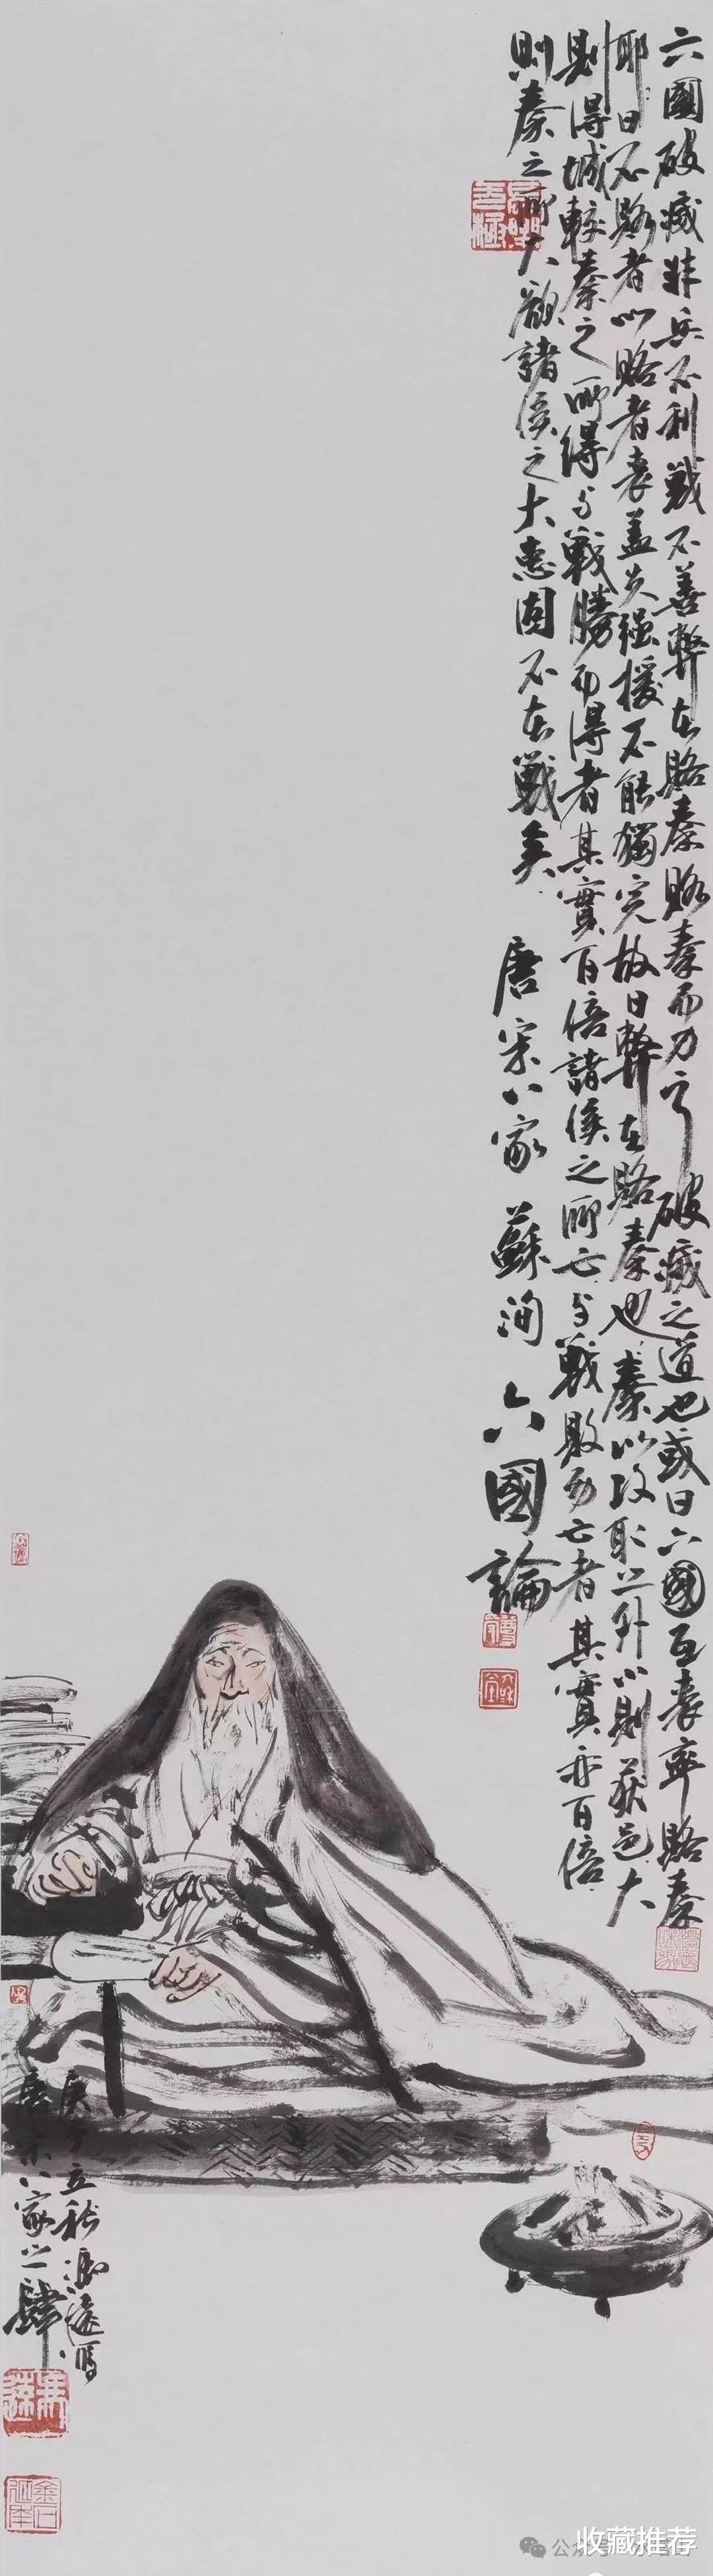 六國破滅非兵不利戰不善弊在賂秦賂秦而力亏破滅之道也或曰六國互喪率賂秦
耶曰不賂者以賂者喪蓋失强援不能獨完故曰弊在賂秦也秦以攻取之外小則获邑大
則得城較秦之所得与戰勝而得者其實百倍諸侯之所亡与戰敗而亡者其實亦百倍
則秦之所大欲諸侯之大患固不在戰矣 唐宋八家 蘇洵 六國論
庚子立秋馮遠寫
唐宋八家之肆
公众号
收藏推荐